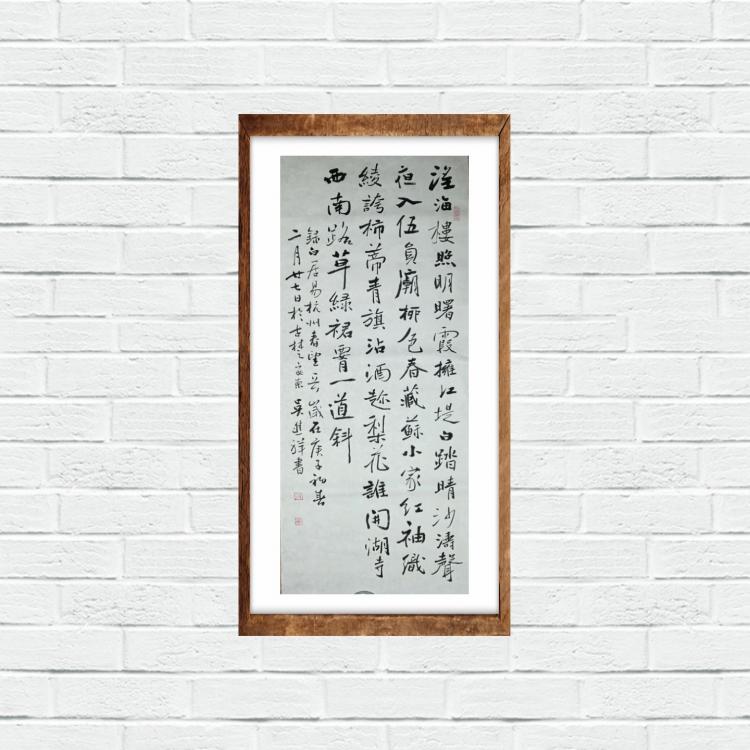 海樓照明曙霞擁江堤白踏晴沙濤聲
夜入伍員廟柳色春藏蘇小家紅袖織
綾誇柿蒂青旗沽酒趁梨花誰開湖寺
西南路草綠裙腰一道斜
錄白居易杭州春望歲在庚子初春
二月廿七日於古楚吳進祥書